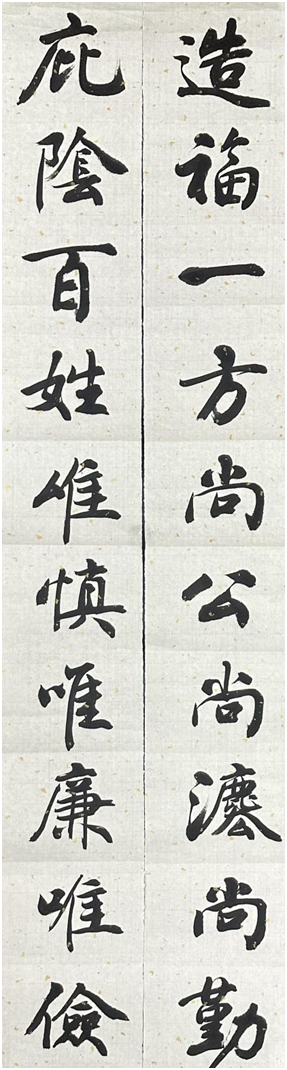 造福一方尚公尚灋尚勤
庇陰百姓唯慎唯廉唯儉